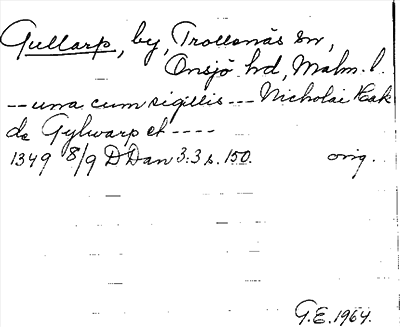 Gullarp, by, Trollenäs sn,
Onsjö hd, Malm. l.
-- una cum sigillis --- Nicholai Hak
de Gylwarp et ----
1349 8/9 DDan 3:3 s. 150. orig.
G.E. 1964.